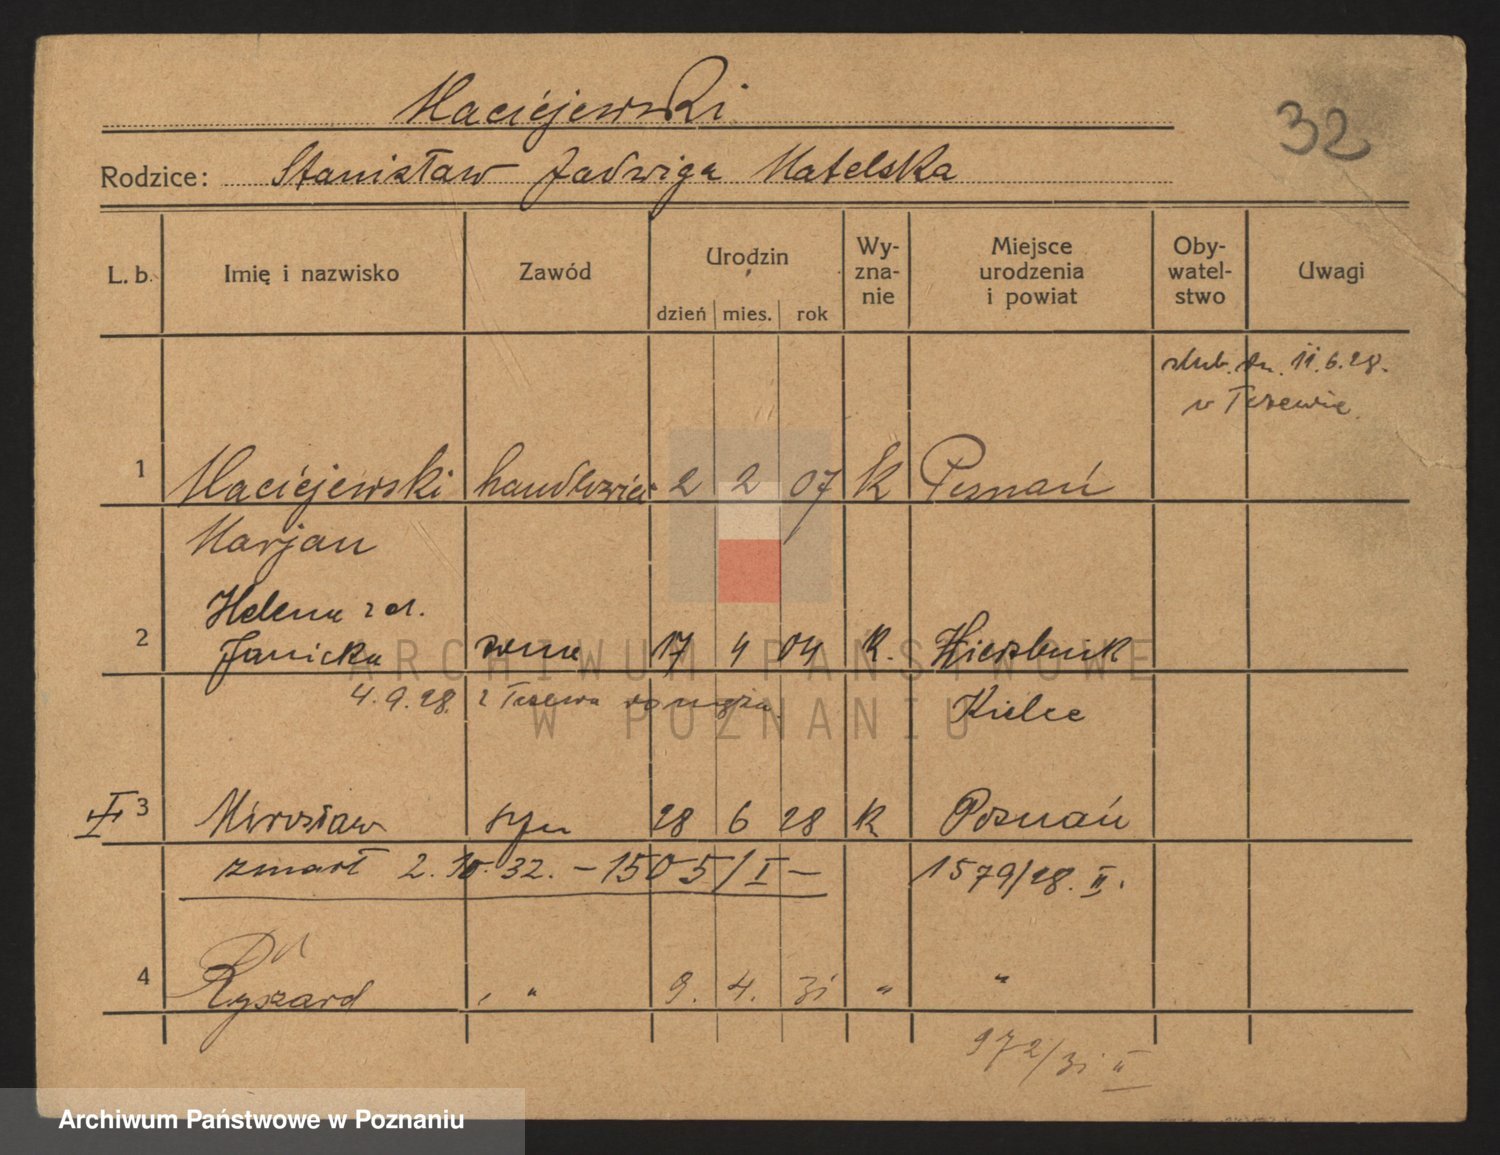 Maciejewski
32
Rodzice: Stanisław Jadwiga Matelska
L. b. Imię i nazwisko Zawód Urodzin dzień mies. rok Wy-zna-nie Miejsce urodzenia i powiat Oby-watel-stwo Uwagi
ślub. dn. 11.6.28.
w Tczewie
1 Maciejewski handlowiec 2 2 07 k Poznań
Marjan
Helena z d.
2 Janicka żona 17 4 04 k. Wierzbnik
4.9.28. z Tczewa do męża. Kielce
3 Mirosław syn 28 6 28 k Poznań
zmarł 2.10.32. – 1505/I – 1579/28. II.
4 Ryszard " " 9. 4. 31 " "
972/31 II
ARCHIWUM PAŃSTWOWE
W POZNANIU
Archiwum Państwowe w Poznaniu